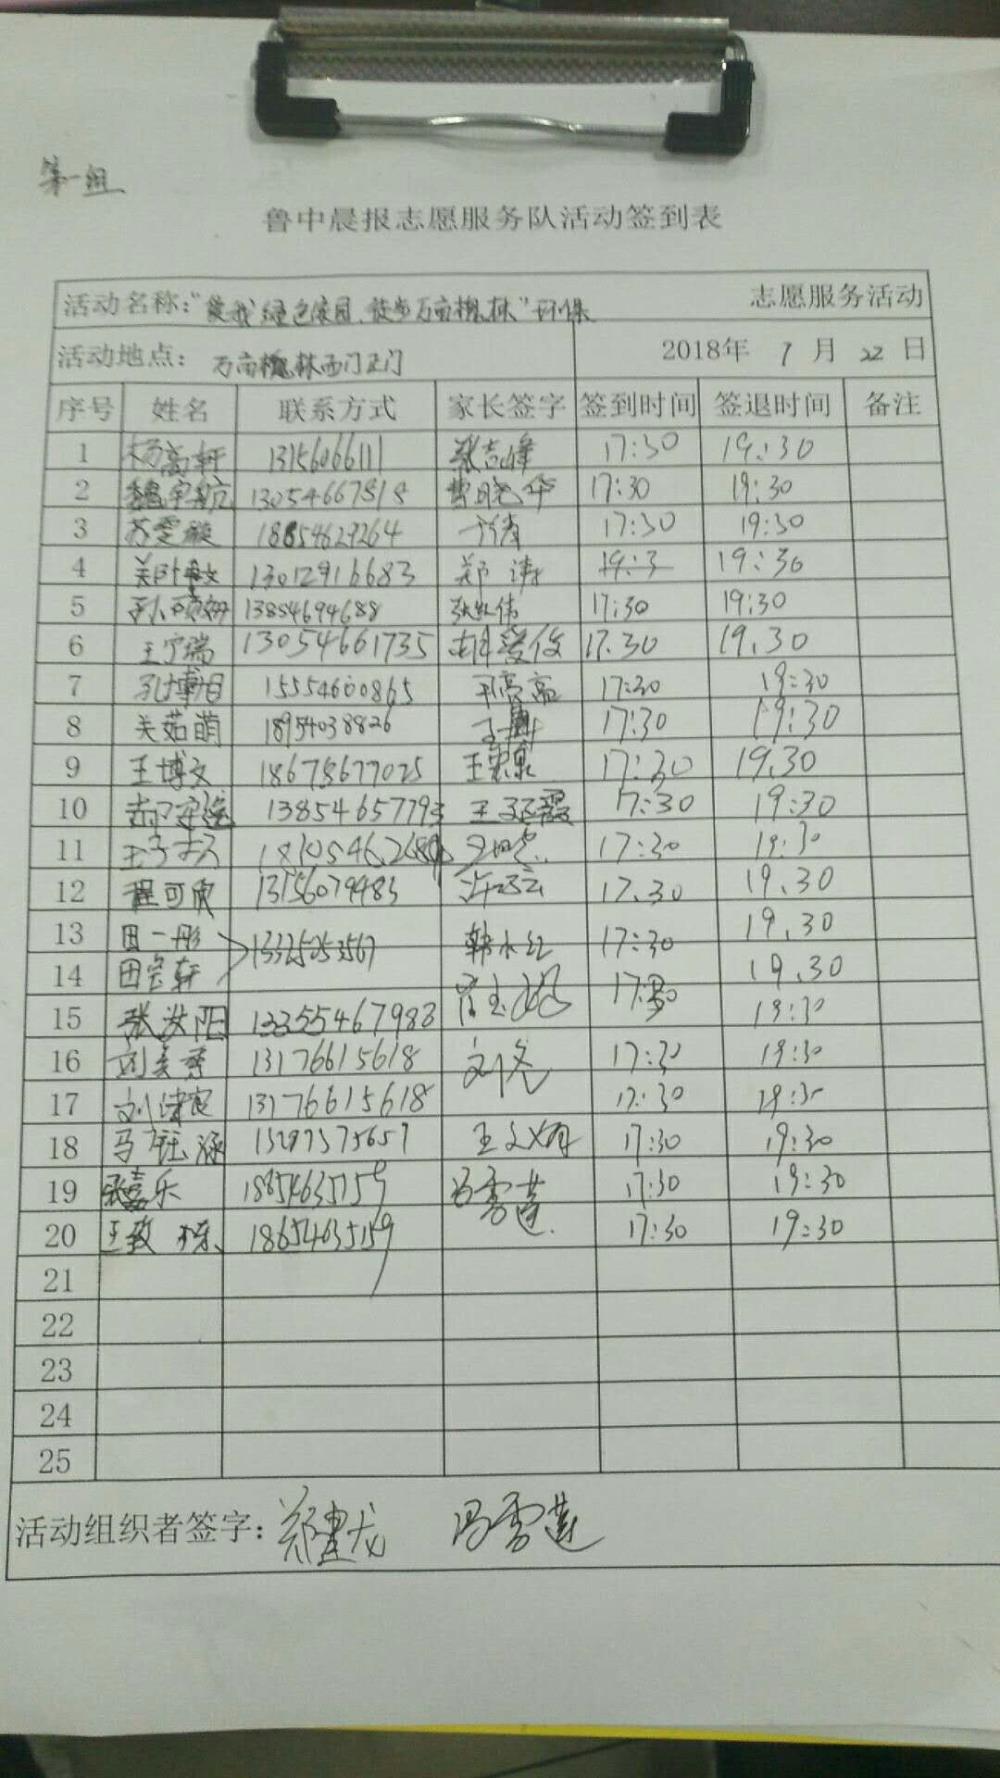 第一组
鲁中晨报志愿服务队活动签到表
活动名称：“爱我绿色家园、徒步万亩槐林”环保 志愿服务活动
活动地点： 万亩槐林西门正门 2018年 7 月 22 日
序号 姓名 联系方式 家长签字 签到时间 签退时间 备注
1 杨高轩 13156066111 张志峰 17:30 19:30
2 魏宇航 13054667818 曹晓华 17:30 19:30
3 苏雯璇 18854629264 17:30 19:30
4 13012916683 郑涛 19:3 19:30
5 13854694688 张红伟 17:30 19:30
6 王宁瑞 13054661735 17.30 19.30
7 15554600865 17:30 19:30
8 关茹萌 18954038826 17:30 19:30
9 王博文 18678677025 17:30 19.30
10 13854657793 17:30 19:30
11 17:30 19:30
12 程可欣 13156079483 17.30 19.30
13 田一彤 13325053567 韩永红 17:30 19.30
14 田宗轩 17:30 19.30
15 张汝阳 13355467983 19:30
16 13176615618 刘 17:30 19:30
17 刘 13176615618 17:30 19:30
18 马钰涵 王 17:30 19:30
19 张嘉乐 18654635159 冯雪莲 17:30 19:30
20 王致栋 18654635159 17:30 19:30
21
22
23
24
25
活动组织者签字： 郑建龙 冯雪莲